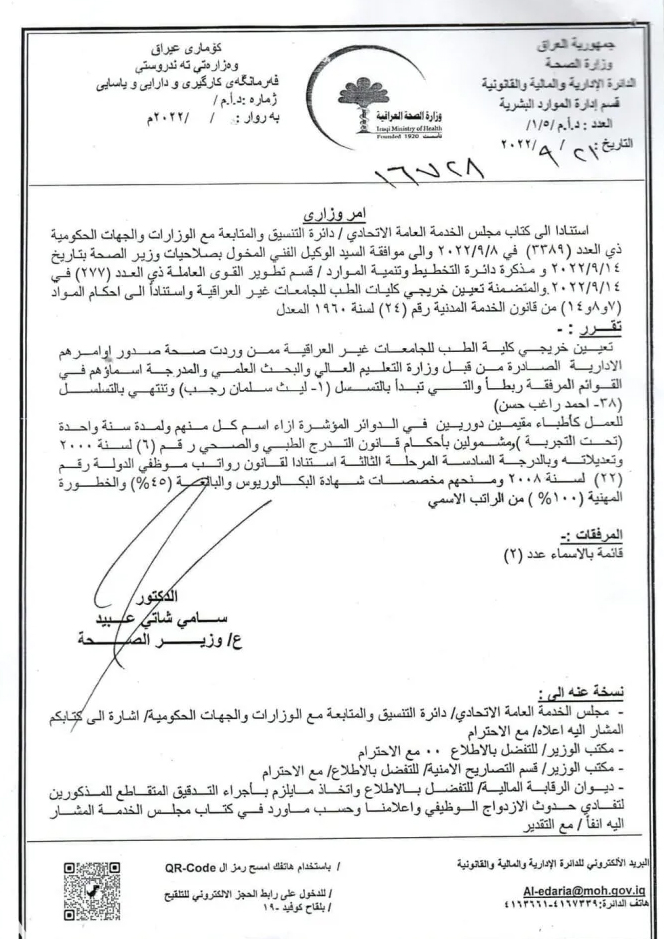 جمهورية العراق
وزارة الصحة
الدائرة الإدارية والمالية والقانونية
قسم إدارة الموارد البشرية
العدد : د.أ.م/١/٥/
التاريخ: ٢١/٩/٢٠٢٢
١٦٧٢٨
كۆماری عیراق
وەزارەتي تە ندروستي
فەرمانگەی کارگێری و دارایی و یاسایی
ژمارە :د.أ.م /
بە روار : / /٢٠٢٢م
وزارة الصحة العراقية
Iraqi Ministry of Health
Founded 1920 تأسست
امر وزاري
استنادا الى كتاب مجلس الخدمة العامة الاتحادي / دائرة التنسيق والمتابعة مع الوزارات والجهات الحكومية
ذي العدد (٣٣٨٩) في ٢٠٢٢/٩/٨ والى موافقة السيد الوكيل الفني المخول بصلاحيات وزير الصحة بتاريخ
٢٠٢٢/٩/١٤ و مذكرة دائرة التخطيط وتنمية الموارد / قسم تطوير القوى العاملة ذي العدد (٢٧٧) في
٢٠٢٢/٩/١٤ والمتضمنة تعيين خريجي كليات الطب للجامعات غير العراقية واستناداً الى احكام المواد
(٧و٨و١٤) من قانون الخدمة المدنية رقم (٢٤) لسنة ١٩٦٠ المعدل
تقـــرر : -
تعيين خريجي كلية الطب للجامعات غير العراقية ممن وردت صحة صدور اوامرهم
الادارية الصادرة من قبل وزارة التعليم العالي والبحث العلمي والمدرجة اسماؤهم في
القوائم المرفقة ربطاً والتي تبدأ بالتسسل (١- ليث سلمان رجب) وتنتهي بالتسلسل
(٣٨- احمد راغب حسن)
للعمل كأطباء مقيمين دوريين في الدوائر المؤشرة ازاء اسم كل منهم ولمدة سنة واحدة
(تحت التجربة ) ومشمولين بأحكام قانون التدرج الطبي والصحي رقم (٦) لسنة ٢٠٠٠
وتعديلاته وبالدرجة السادسة المرحلة الثالثة استنادا لقانون رواتب موظفي الدولة رقم
(٢٢) لسنة ٢٠٠٨ ومنحهم مخصصات شهادة البكالوريوس والبالغة (٤٥%) والخطورة
المهنية (١٠٠%) من الراتب الاسمي
المرفقات :-
قائمة بالاسماء عدد (٢)
الدكتور
سامي شاتي عبيد
ع/ وزير الصحة
نسخة عنه الى :
- مجلس الخدمة العامة الاتحادي/ دائرة التنسيق والمتابعة مع الوزارات والجهات الحكومية/ اشارة الى كتابكم
المشار اليه اعلاه/ مع الاحترام
- مكتب الوزير/ للتفضل بالاطلاع ٠٠ مع الاحترام
- مكتب الوزير/ قسم التصاريح الامنية/ للتفضل بالاطلاع/ مع الاحترام
- ديوان الرقابة المالية/ للتفضل بالاطلاع واتخاذ مايلزم بأجراء التدقيق المتقاطع للمذكورين
لتفادي حدوث الازدواج الوظيفي واعلامنا وحسب ماورد في كتاب مجلس الخدمة المشار
اليه انفاً / مع التقدير
البريد الألكتروني للدائرة الإدارية والمالية والقانونية
Al-edaria@moh.gov.iq
هاتف الدائرة:٤١٦٧٣٣٩-٤١٦٣٦٦١
/ باستخدام هاتفك امسح رمز ال QR-Code
/ للدخول على رابط الحجز الالكتروني للتلقيح
/ بلقاح كوفيد -١٩